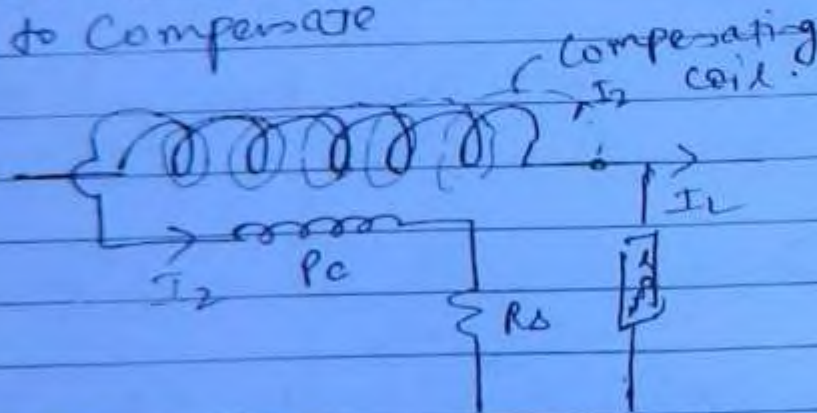 to Compensate
Compensating
I2 coil.
IL
I2 Pc
Rs